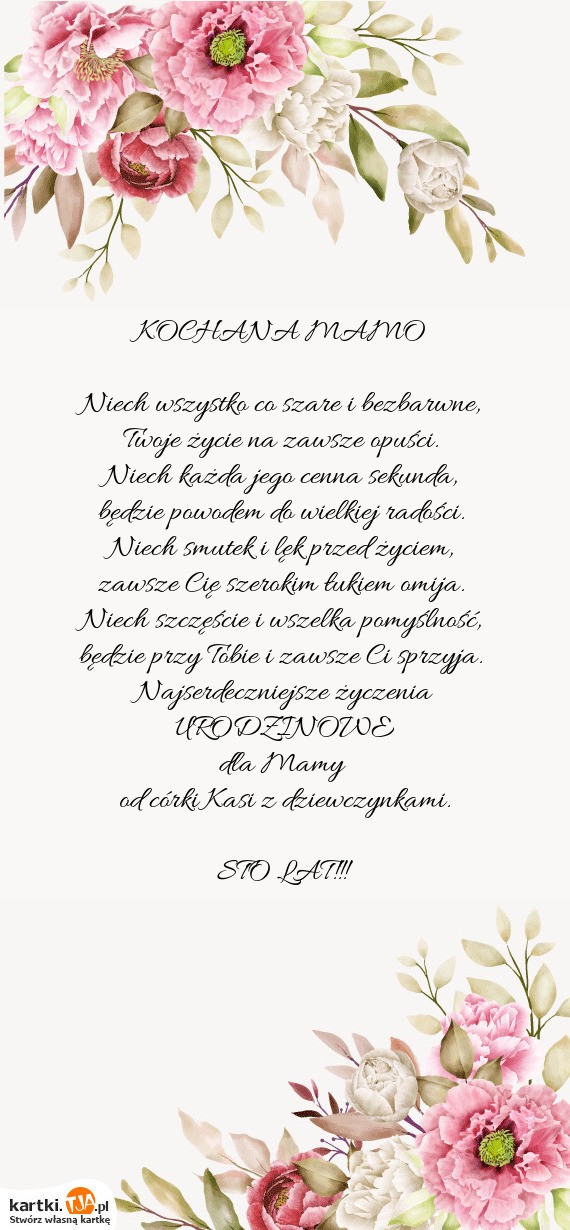 KOCHANA MAMO
Niech wszystko co szare i bezbarwne,
Twoje życie na zawsze opuści.
Niech każda jego cenna sekunda,
będzie powodem do wielkiej radości.
Niech smutek i lęk przed życiem,
zawsze Cię szerokim łukiem omija.
Niech szczęście i wszelka pomyślność,
będzie przy Tobie i zawsze Ci sprzyja.
Najserdeczniejsze życzenia
URODZINOWE
dla Mamy
od córki Kasi z dziewczynkami.
STO LAT!!!
kartki.TJA.pl
Stwórz własną kartkę